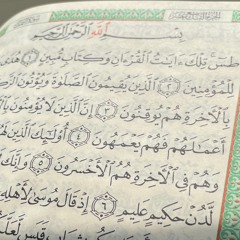 بِسْمِ اللَّهِ الرَّحْمَٰنِ الرَّحِيمِ
طسٓ تِلْكَ ءَايَٰتُ الْقُرْءَانِ وَكِتَابٍ مُّبِينٍ ۝١ هُدًى
لِلْمُؤْمِنِينَ ۝٢ الَّذِينَ يُقِيمُونَ الصَّلَوٰةَ وَيُؤْتُونَ الزَّكَوٰةَ
بِالْءَاخِرَةِ هُمْ يُوقِنُونَ ۝٣ إِنَّ الَّذِينَ لَا يُؤْمِنُونَ بِالْ
أَعْمَٰلَهُمْ فَهُمْ يَعْمَهُونَ ۝٤ أُو۟لَٰٓئِكَ الَّذِينَ لَهُ
وَهُمْ فِي الْءَاخِرَةِ هُمُ الْأَخْسَرُونَ ۝٥ وَإِنَّكَ
لَّدُنْ حَكِيمٍ عَلِيمٍ ۝٦ إِذْ قَالَ مُوسَىٰ لِأَهْلِهِ
قَبَسٍ لَّعَلَّ